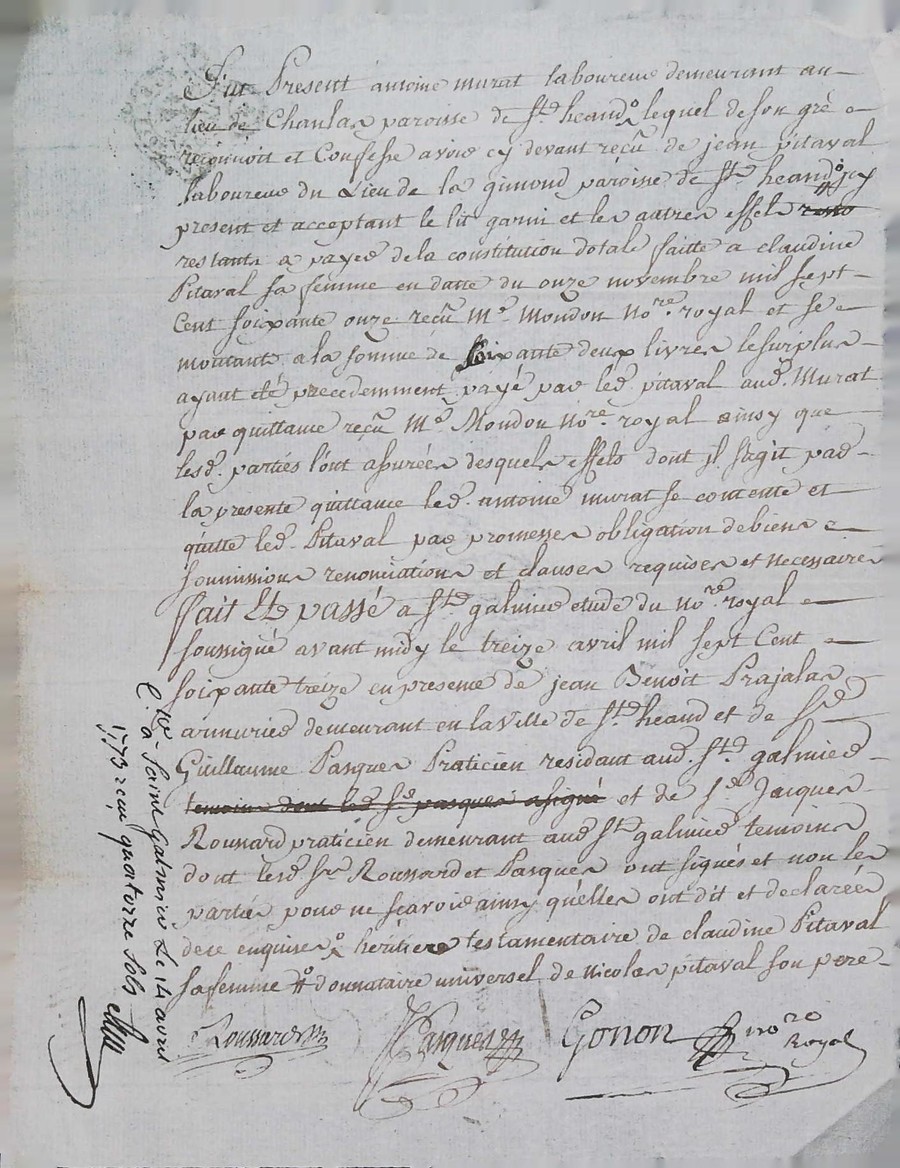 Fut Present antoine murat laboureur demeurant au
lieu de Chaulas paroisse de St. heand° lequel de son gré
reconnoit et Confesse avoir cy devant reçu de jean pitaval
laboureur du Lieu de la gimond paroisse de St. heand # cy
present et acceptant le lit garni et les autres effets
restants a payer de la constitution dotale faitte a claudine
Pitaval sa femme en datte du onze novembre mil sept
Cent soixante onze reçu Me. Mondon Nore. royal et se
montants a la somme de soixante deux livres le surplus
ayant été precedemment payé par led. pitaval aud. Murat
par quittance reçu Me Mondon Nore. royal ainsy que
lesd. parties l'ont assurées desquels effets dont il s'agit par
la presente quittance led. antoine murat se contente et
quitte led. Pitaval par promesses obligation de biens
soumissions renonciations et clauses requises et necessaires
fait Et passé a St galmier etude du nore. royal
soussigné avant midy le treize avril mil sept Cent
soixante treize en presence de jean Benoit Prajalas
armurier demeurant en la ville de St. heand et de Sr
Guillaume Pasques Praticien residant aud. St. galmier
temoins dont led. Sr. pasques a signé et de Sr. Jacques
Roussard praticien demeurant aud St galmier temoins
dont lesd Srs. Roussard et Pasques ont signés et non les
parties pour ne sçavoir ainsy qu'elles ont dit et declarées
de ce enquises ° héritiere testamentaire de claudine Pitaval
sa femme # donnataire universel de nicolas pitaval son pere
Roussard Pasques Gonon nore Royal
C.lé a Saint Galmier Le 14 avril
1773 reçu quatorze sols